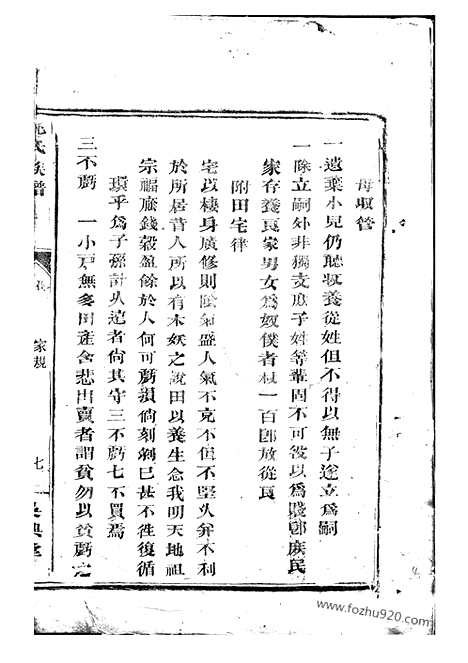 母取管
一遺棄小兒仍聽收養從姓但不得以無子遂立爲嗣
一除立嗣外非獨支庶子姓等輩固不可役以爲賤卽庶民
家存養良家男女爲奴僕者杖一百卽放從良
附田宅律
宅以棲身廣修則陰氣盛人氣不克不但不堅久弁不利
於所居昔人所以有木妖之說田以養生念我明天地祖
宗福廕錢穀盈餘於人何可虧損倘刻剝已甚不徃復循
環乎爲子孫計久遠者尙其守三不虧七不買焉
三不虧 一小戸無多田産含悲出賣者謂貧勿以貧虧之
氏族譜
家規
七
吳興堂
www.fozhu920.com